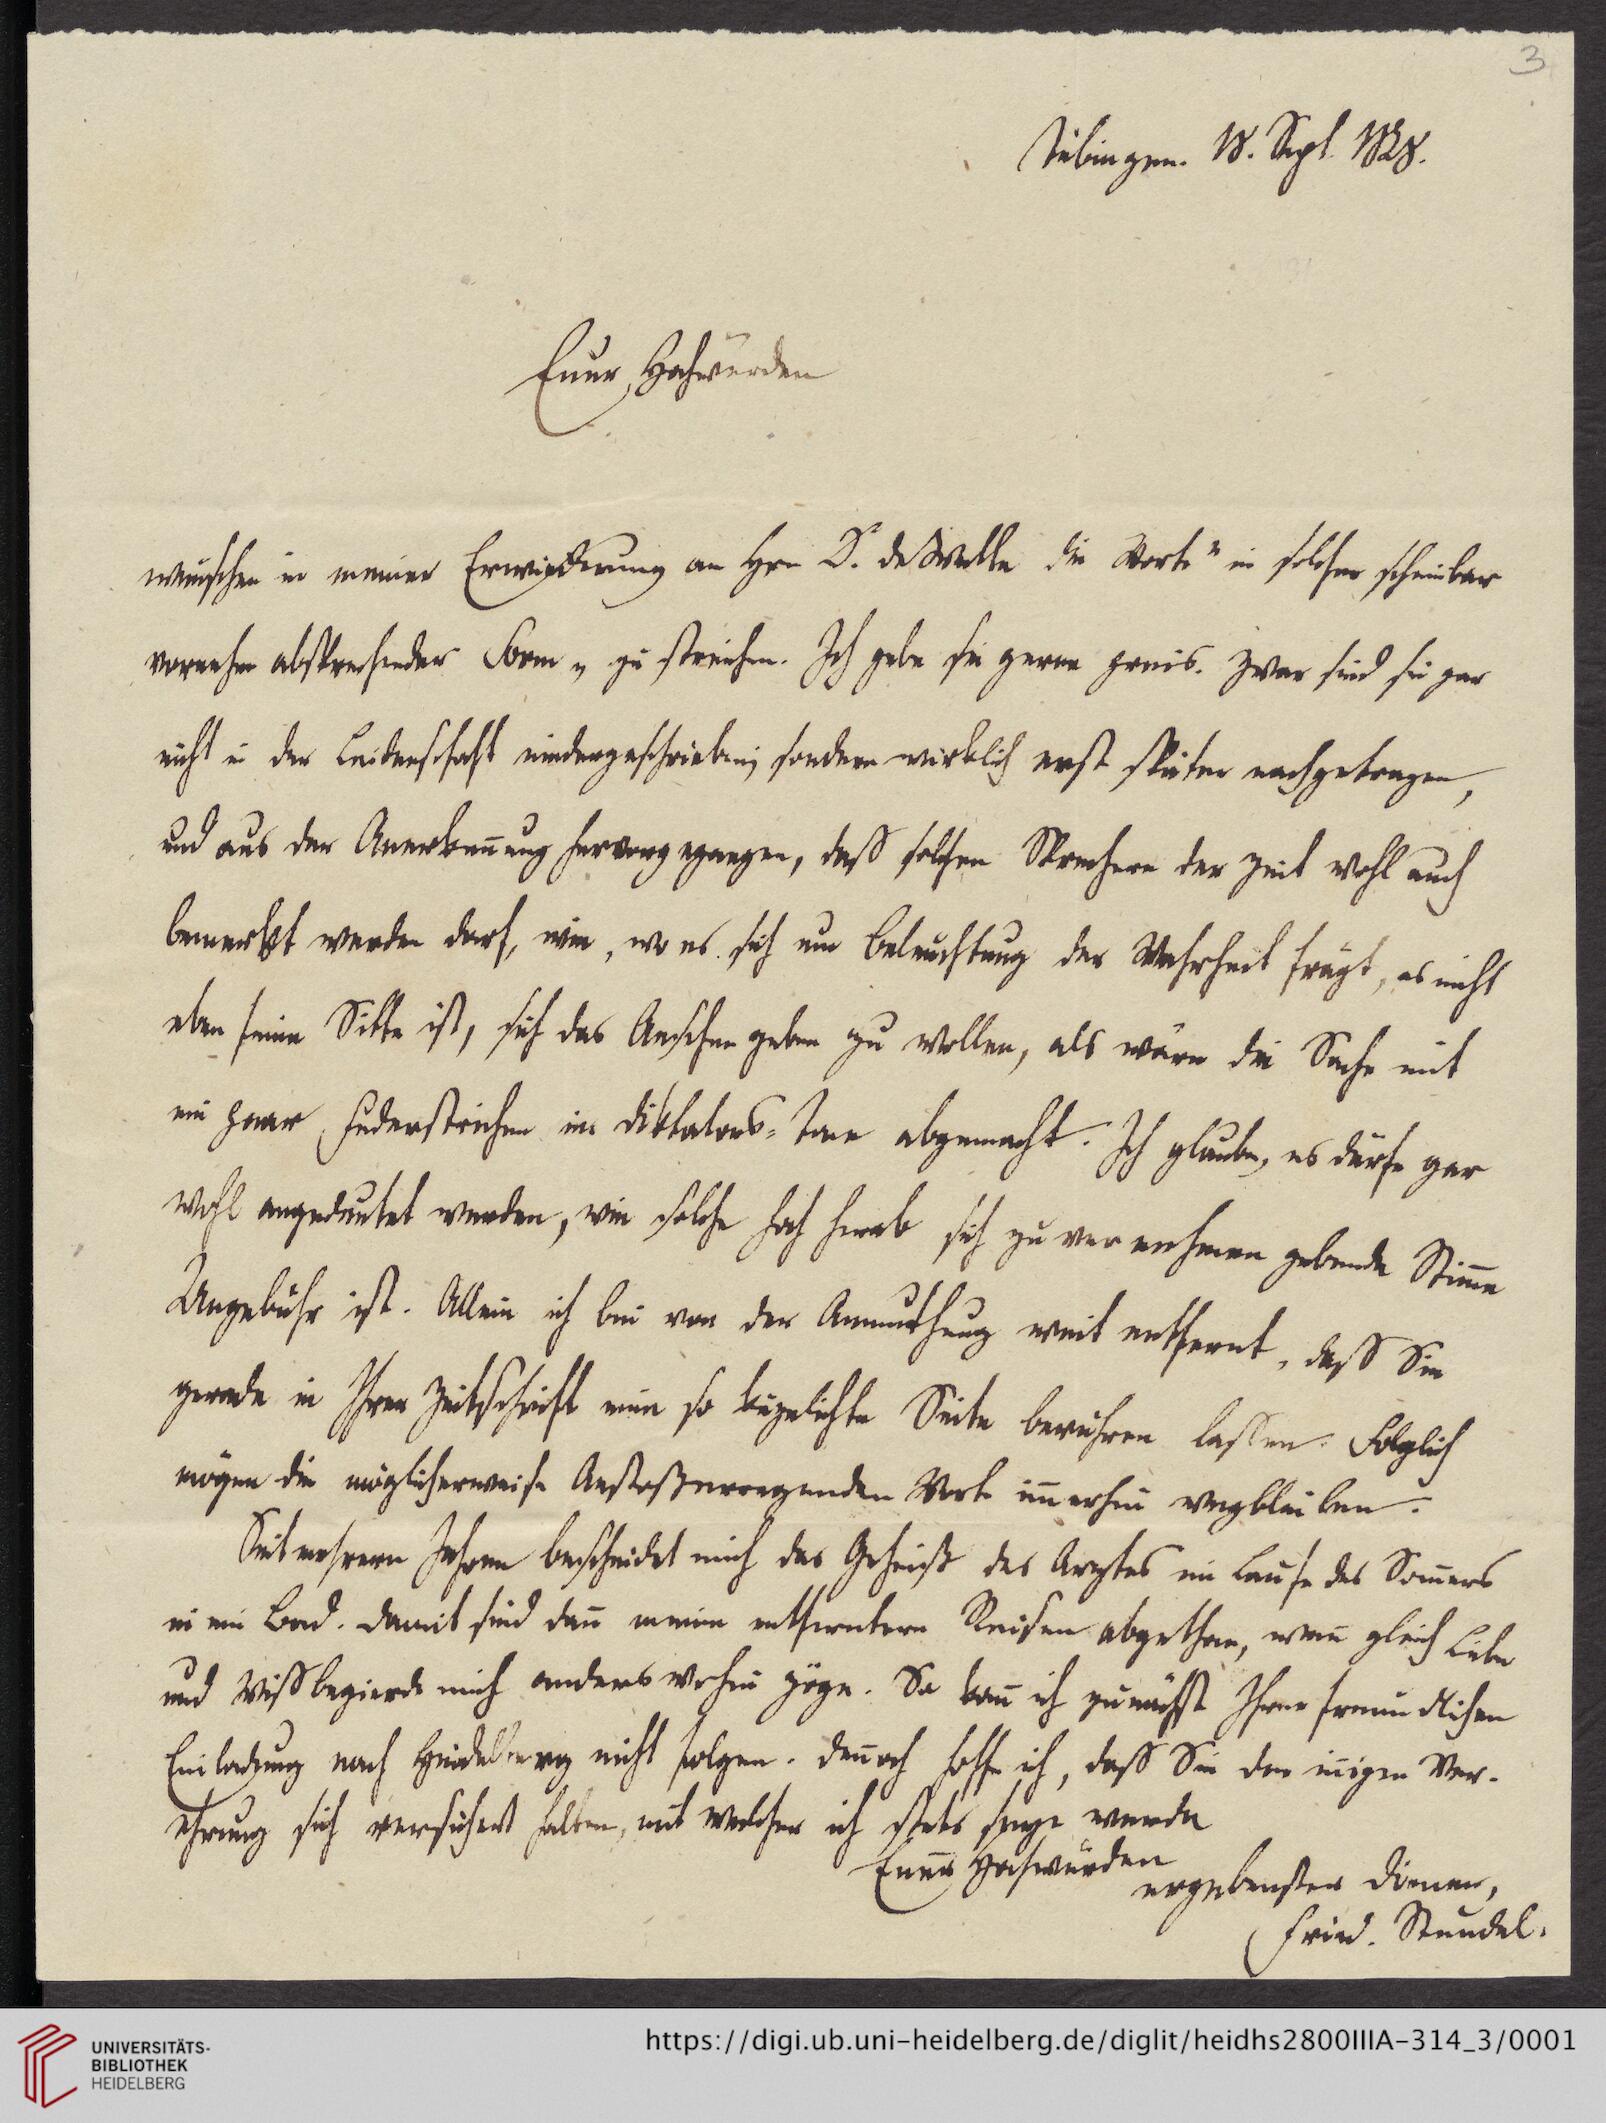 3
Tübingen. 18. Sept. 1828.
Euer Hochwürden
wünschen in meiner Erwiederung an Hrn D. de Wette die Worte " in solcher scheinbar
vornehm absprechender Form " zu streichen. Ich gebe sie gerne preis. Zwar sind sie gar
nicht in der Leidenschaft niedergeschrieben, sondern wirklich erst später nachgetragen,
und aus der Anerkennung hervorgegangen, daß solchen Sprechern der Zeit wohl auch
bemerkt werden darf, wie, wo es sich um Beleuchtung der Wahrheit frägt, es nicht
eben feine Sitte ist, sich das Ansehen geben zu wollen, als wäre die Sache mit
ein paar Federstrichen im Diktators-Tone abgemacht. Ich glaube, es dürfe gar
wohl angedeutet werden, wie solche hoch herab sich zu vernehmen gebende Stimme
Ungebühr ist. Allein ich bin von der Anmuthung weit entfernt, daß Sie
gerade in Ihrer Zeitschrift eine so kizelichte Seite berühren lassen. Folglich
mögen die möglicherweise Anstoßerregenden Worte im̄erhin wegbleiben.
Seit mehrern Jahren bescheidet mich das Geheiß des Arztes im Laufe des Som̄ers
in ein Bad. Damit sind dan̄ meine entferntern Reisen abgethan, wen̄ gleich Liebe
und Wißbegierde mich anders wohin zöge. So kan̄ ich zunächst Ihrer freundlichen
Einladung nach Heidelberg nicht folgen. Den̄och hoffe ich, daß Sie der in̄igen Ver-
ehrung sich versichert halten, mit welcher ich stets seyn werde
Euer Hochwürden
ergebenster Diener,
Fried. Steudel.
UNIVERSITÄTS-
BIBLIOTHEK
HEIDELBERG
https://digi.ub.uni-heidelberg.de/diglit/heidhs2800IIIA-314_3/0001